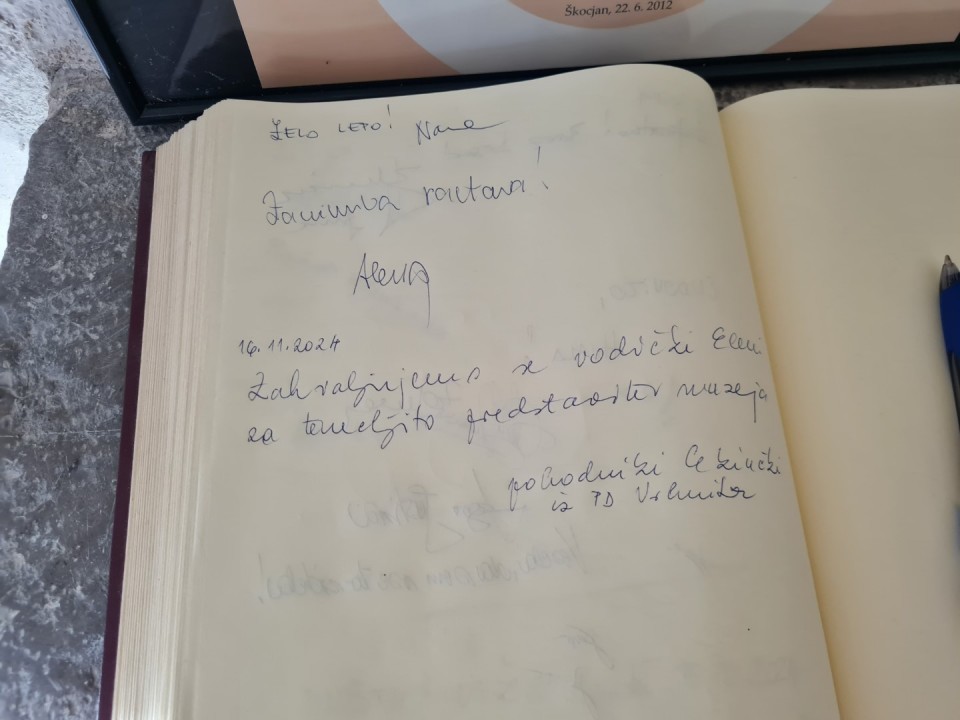 Škocjan, 22. 6. 2012
ŽELO LEPO! Nana
Zanimiva razstava!
Alenka
16.11.2024
Zahvaljujemo se vodički Eleni
za temeljito predstavitev muzeja
pohodniki
iz PD Vrhnika